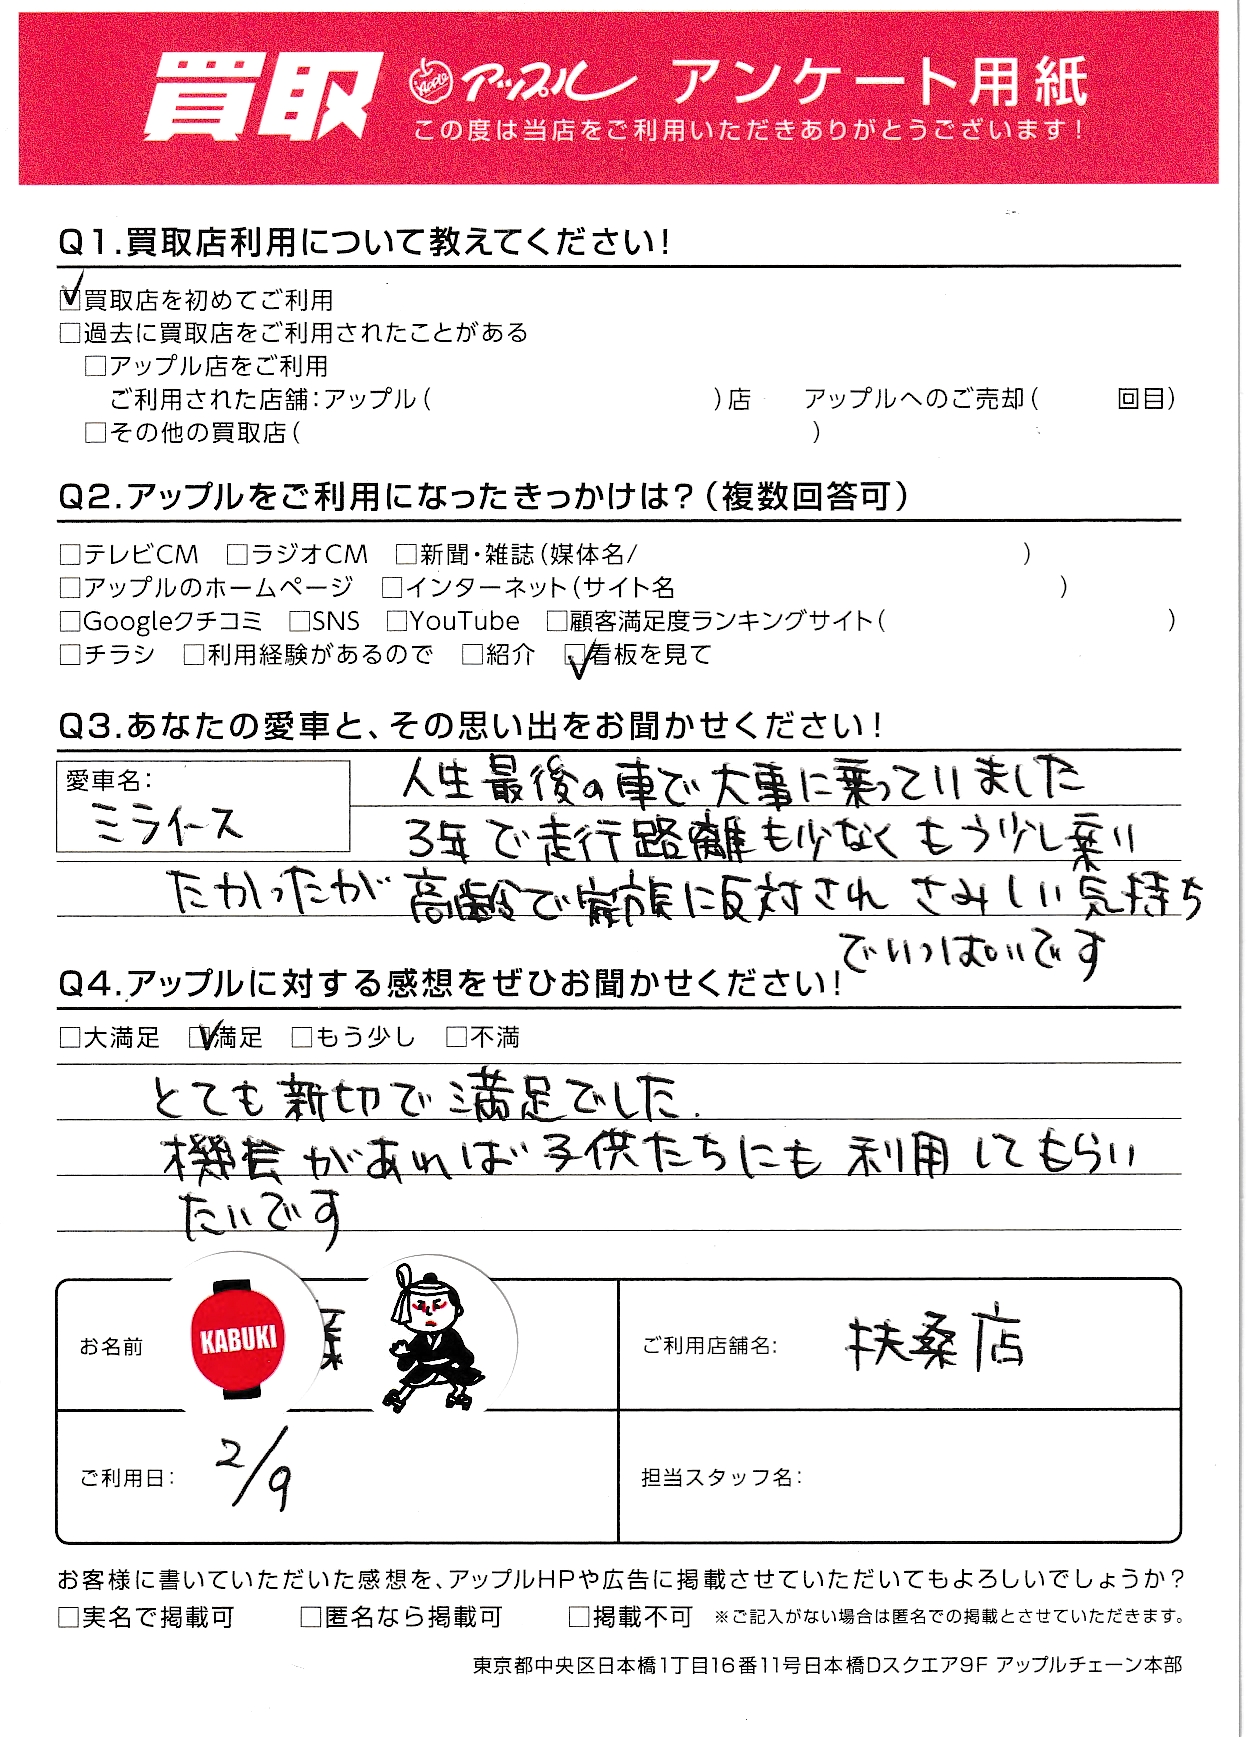 買取 Apple アップル アンケート用紙
この度は当店をご利用いただきありがとうございます!
Q1.買取店利用について教えてください!
☑買取店を初めてご利用
□過去に買取店をご利用されたことがある
□アップル店をご利用
ご利用された店舗:アップル( )店 アップルへのご売却( 回目)
□その他の買取店( )
Q2.アップルをご利用になったきっかけは?(複数回答可)
□テレビCM □ラジオCM □新聞・雑誌(媒体名/ )
□アップルのホームページ □インターネット(サイト名 )
□Googleクチコミ □SNS □YouTube □顧客満足度ランキングサイト( )
□チラシ □利用経験があるので □紹介 ☑看板を見て
Q3.あなたの愛車と、その思い出をお聞かせください!
愛車名:
ミライース
人生最後の車で大事に乗っていました
3年で走行路離も少なくもう少し乗り
たかったが高齢で家族に反対されさみしい気持ち
でいっぱいです
Q4.アップルに対する感想をぜひお聞かせください!
□大満足 ☑満足 □もう少し □不満
とても新切で満足でした.
機会があれば子供たちにも利用してもらい
たいです
お名前 KABUKI
ご利用店舗名: 扶桑店
ご利用日: 2/9
担当スタッフ名:
お客様に書いていただいた感想を、アップルHPや広告に掲載させていただいてもよろしいでしょうか?
□実名で掲載可 □匿名なら掲載可 □掲載不可 ※ご記入がない場合は匿名での掲載とさせていただきます。
東京都中央区日本橋1丁目16番11号日本橋Dスクエア9F アップルチェーン本部